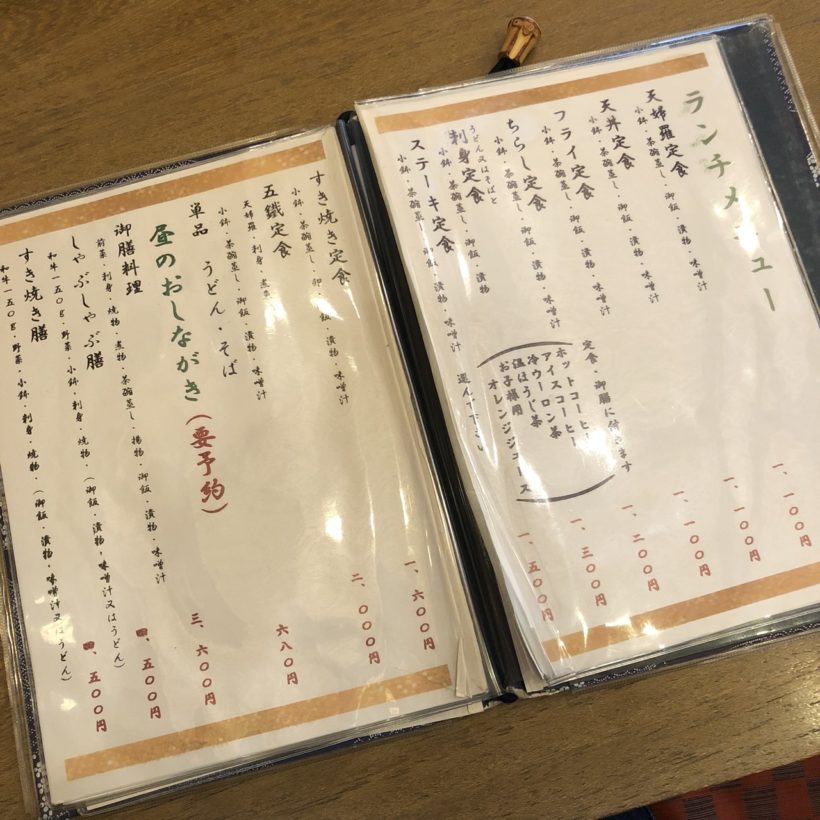 ランチメニュー
天婦羅定食 一、一〇〇円
小鉢・茶碗蒸し・御飯・漬物・味噌汁
天丼定食 一、一〇〇円
小鉢・茶碗蒸し・漬物・味噌汁
フライ定食 一、一〇〇円
小鉢・茶碗蒸し・御飯・漬物・味噌汁
ちらし定食 一、二〇〇円
小鉢・茶碗蒸し・漬物・味噌汁
刺身定食 一、三〇〇円
小鉢・茶碗蒸し・御飯・漬物・味噌汁
ステーキ定食 一、五〇〇円
小鉢・茶碗蒸し・御飯・漬物・味噌汁
定食・御膳に付きます
ホットコーヒー
アイスコーヒー
冷ウーロン茶
温ほうじ茶
お子様用
オレンジジュース
すき焼き定食 一、六〇〇円
小鉢・茶碗蒸し・御飯・漬物・味噌汁
五鐵定食 二、〇〇〇円
天婦羅・刺身・煮
小鉢・茶碗蒸し・御飯・漬物・味噌汁
単品 うどん・そば 六八〇円
昼のおしながき(要予約)
御膳料理 三、六〇〇円
前菜・刺身・焼物・煮物・茶碗蒸し・揚物・御飯・漬物・味噌汁
しゃぶしゃぶ膳 四、五〇〇円
和牛一五〇g・野菜・小鉢・刺身・焼物・(御飯・漬物・味噌汁又はうどん)
すき焼き膳 四、五〇〇円
和牛一五〇g・野菜・小鉢・刺身・焼物・(御飯・漬物・味噌汁又はうどん)